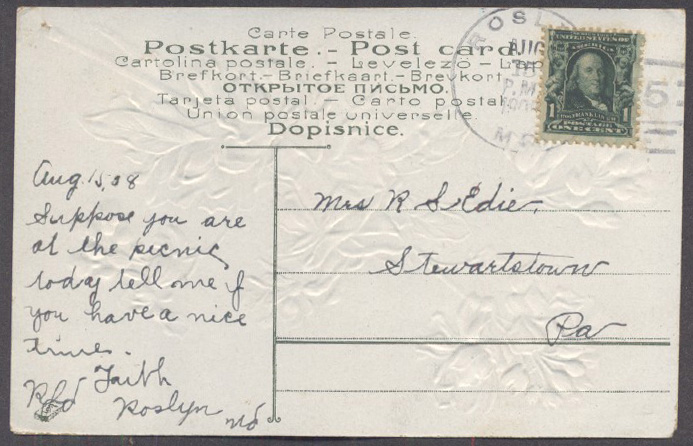 Carte Postale.
Postkarte.- Post card.
Cartolina postale. - Levelező - Lap
Brefkort.- Briefkaart.- Brevkort
ОТКРЫТОЕ ПИСЬМО.
Tarjeta postal - Carto postal
Union postale universelle.
Dopisnice.
ROSLY
AUG
15
P.M
190
MD
UNITED STATES OF
AMERICA
1 FRANKLIN 1
POSTAGE
ONE CENT
5
Aug. 15, 08
Suppose you are
at the picnic
today tell me if
you have a nice
time.
Faith
Roslyn Md
Mrs R S Edie.
Stewartstown
Pa